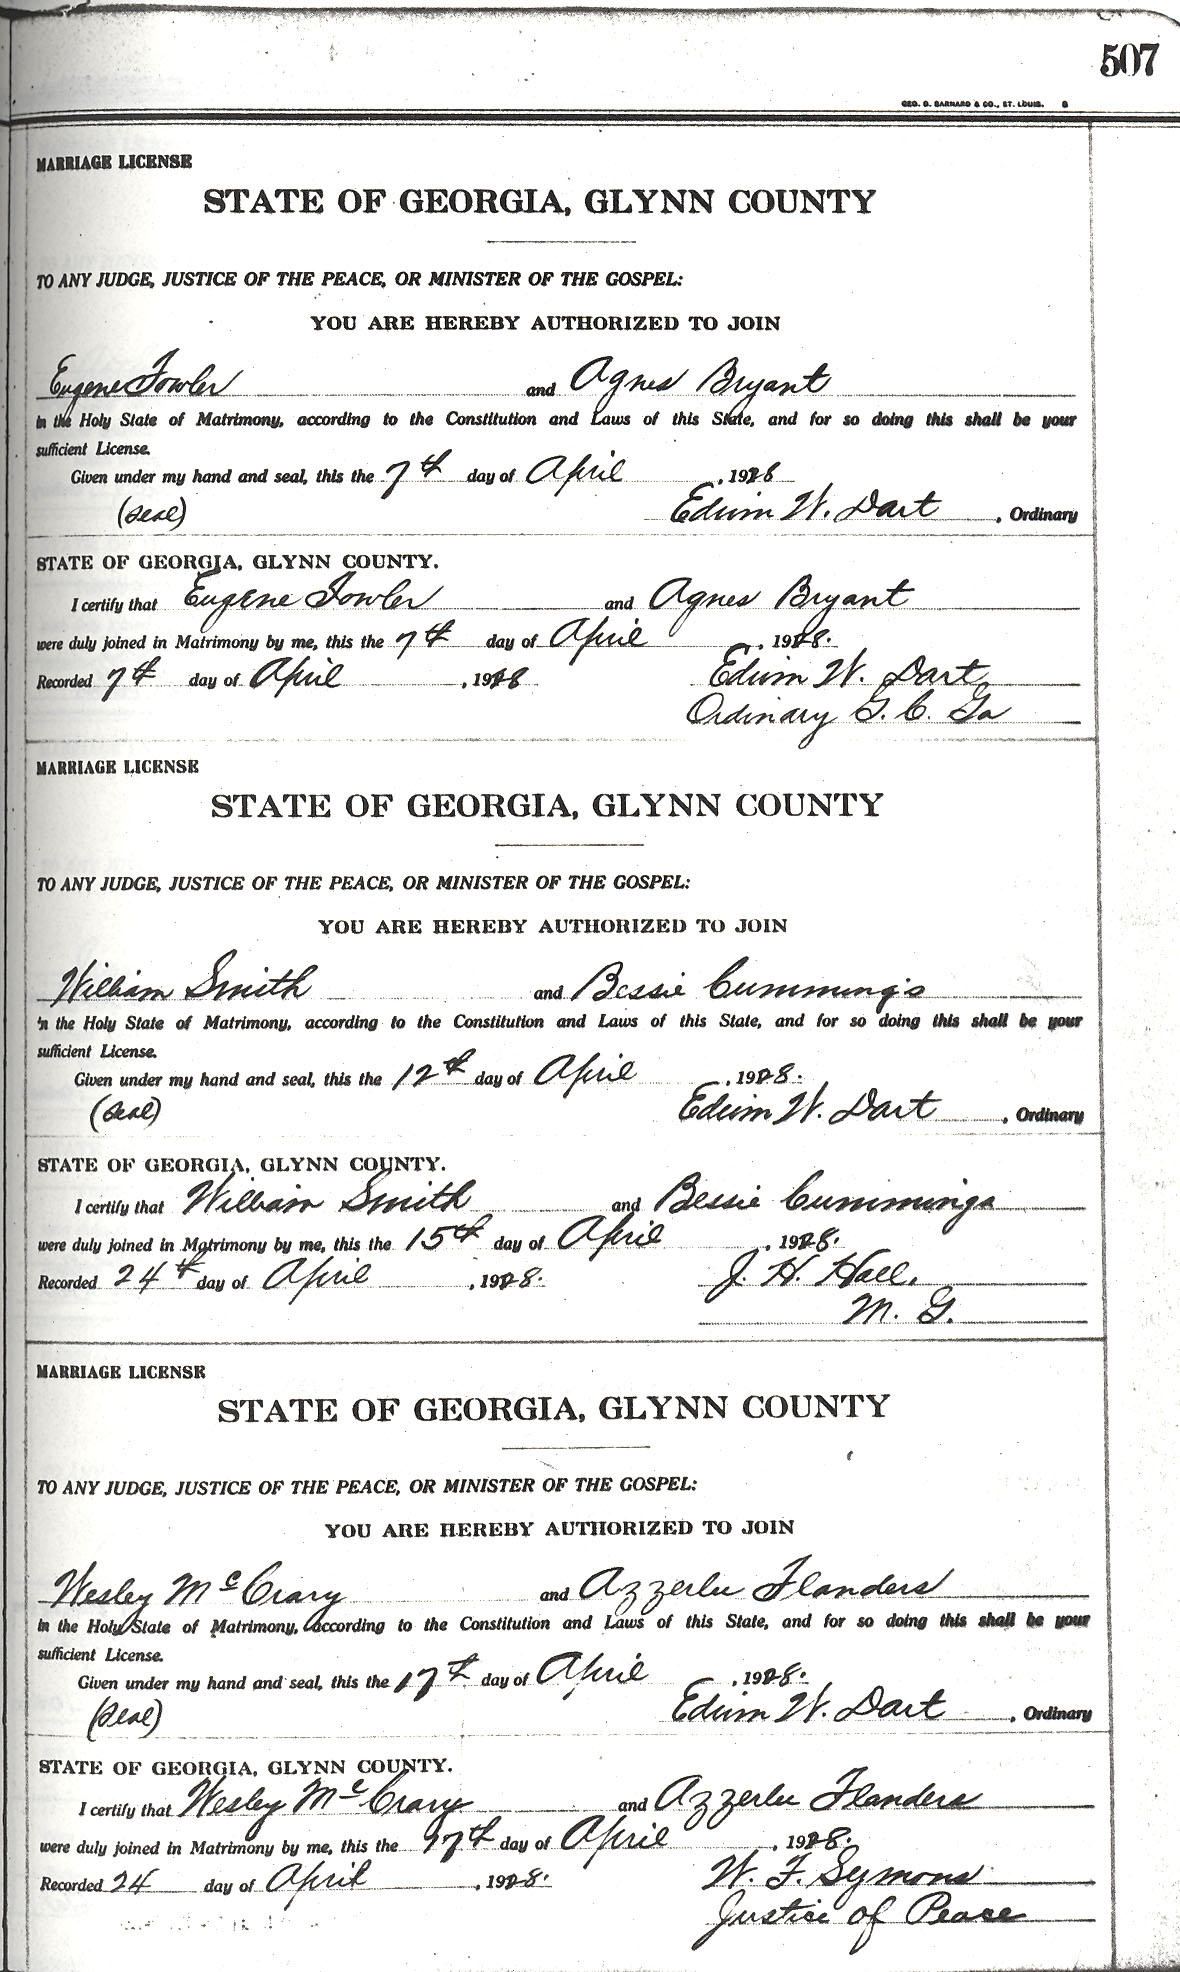 507
GEO. D. BARNARD & CO., ST. LOUIS. B
MARRIAGE LICENSE
STATE OF GEORGIA, GLYNN COUNTY
TO ANY JUDGE, JUSTICE OF THE PEACE, OR MINISTER OF THE GOSPEL:
YOU ARE HEREBY AUTHORIZED TO JOIN
Eugene Fowler and Agnes Bryant
in the Holy State of Matrimony, according to the Constitution and Laws of this State, and for so doing this shall be your
sufficient License.
Given under my hand and seal, this the 7th day of April, 1928
(Seal) Edwin W. Dart, Ordinary
STATE OF GEORGIA, GLYNN COUNTY.
I certify that Eugene Fowler and Agnes Bryant
were duly joined in Matrimony by me, this the 7th day of April, 1928.
Recorded 7th day of April, 1928 Edwin W. Dart
Ordinary G. C. Ga
MARRIAGE LICENSE
STATE OF GEORGIA, GLYNN COUNTY
TO ANY JUDGE, JUSTICE OF THE PEACE, OR MINISTER OF THE GOSPEL:
YOU ARE HEREBY AUTHORIZED TO JOIN
William Smith and Bessie Cummings
in the Holy State of Matrimony, according to the Constitution and Laws of this State, and for so doing this shall be your
sufficient License.
Given under my hand and seal, this the 12th day of April, 1928.
(Seal) Edwin W. Dart, Ordinary
STATE OF GEORGIA, GLYNN COUNTY.
I certify that William Smith and Bessie Cummings
were duly joined in Matrimony by me, this the 15th day of April, 1928.
Recorded 24th day of April, 1928. J. H. Hall.
M. G.
MARRIAGE LICENSE
STATE OF GEORGIA, GLYNN COUNTY
TO ANY JUDGE, JUSTICE OF THE PEACE, OR MINISTER OF THE GOSPEL:
YOU ARE HEREBY AUTHORIZED TO JOIN
Wesley McCrary and Azzerlu Flanders
in the Holy State of Matrimony, according to the Constitution and Laws of this State, and for so doing this shall be your
sufficient License.
Given under my hand and seal, this the 17th day of April, 1928.
(Seal) Edwin W. Dart, Ordinary
STATE OF GEORGIA, GLYNN COUNTY.
I certify that Wesley McCrary and Azzerlu Flanders
were duly joined in Matrimony by me, this the 17th day of April, 1928.
Recorded 24 day of April, 1928. W. F. Symons
Justice of Peace